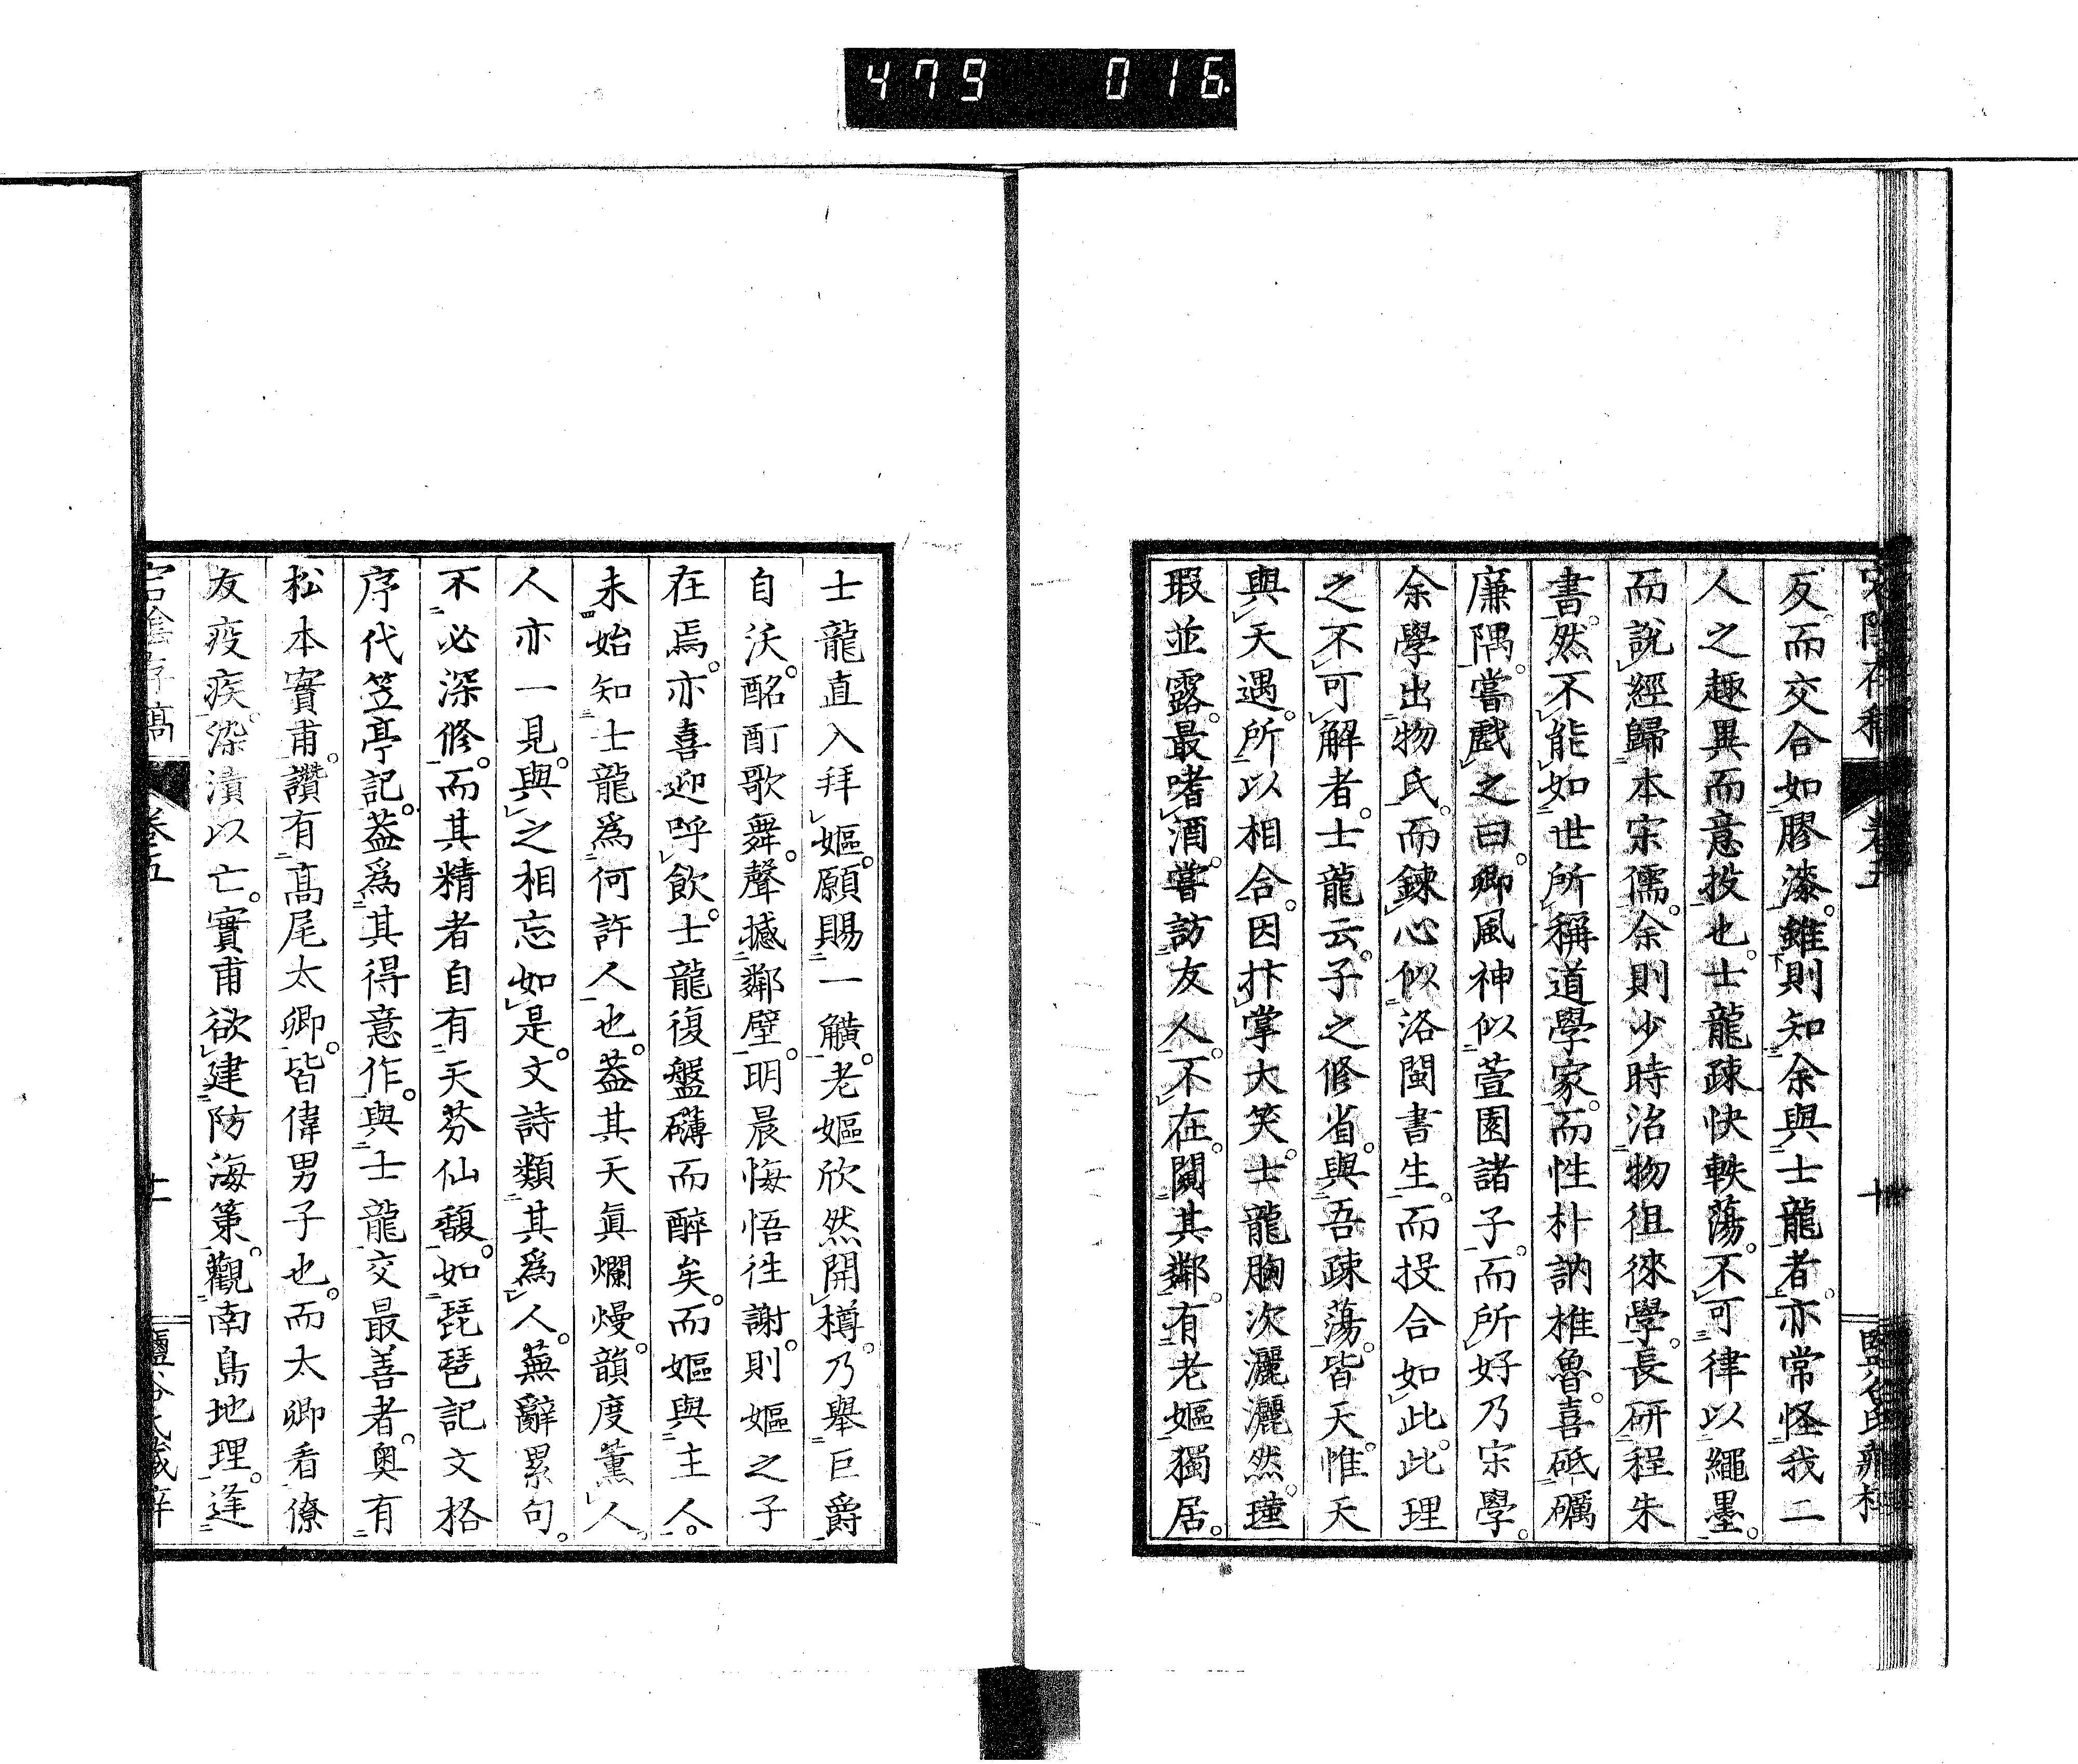 479 016
反而交合如膠漆。雖則知余與士龍者。亦常怪我二
人之趣異而意投也。士龍疎快軼蕩。不可律以繩墨。
而說經歸本宋儒。余則少時治物徂徠學。長研程朱
書。然不能如世所稱道學家。而性朴訥椎魯。喜砥礪
廉隅。嘗戲之曰。卿風神似萱園諸子。而所好乃宋學。
余學出物氏。而鍊心似洛閩書生。而投合如此。此理
之不可解者。士龍云。子之修省。與吾疎蕩。皆天。惟天
與天遇。所以相合。因抃掌大笑。士龍胸次灑灑然。瑾
瑕並露。最嗜酒。嘗訪友人。不在。闖其鄰。有老嫗獨居。
士龍直入拜嫗。願賜一觵。老嫗欣然開樽。乃舉巨爵
自沃。酩酊歌舞。聲撼鄰壁。明晨悔悟往謝。則嫗之子
在焉。亦喜迎呼飲。士龍復盤礴而醉矣。而嫗與主人。
未始知士龍爲何許人也。葢其天眞爛熳。韻度薰人。
人亦一見。與之相忘如是。文詩類其爲人。蕪辭累句。
不必深修。而其精者自有天芬仙馥。如琵琶記文格
序代笠亭記。葢爲其得意作。與士龍交最善者。奧有
松本實甫。讚有高尾太卿。皆偉男子也。而太卿看僚
友疫疾。染漬以亡。實甫欲建防海策。觀南島地理。逢
卷五